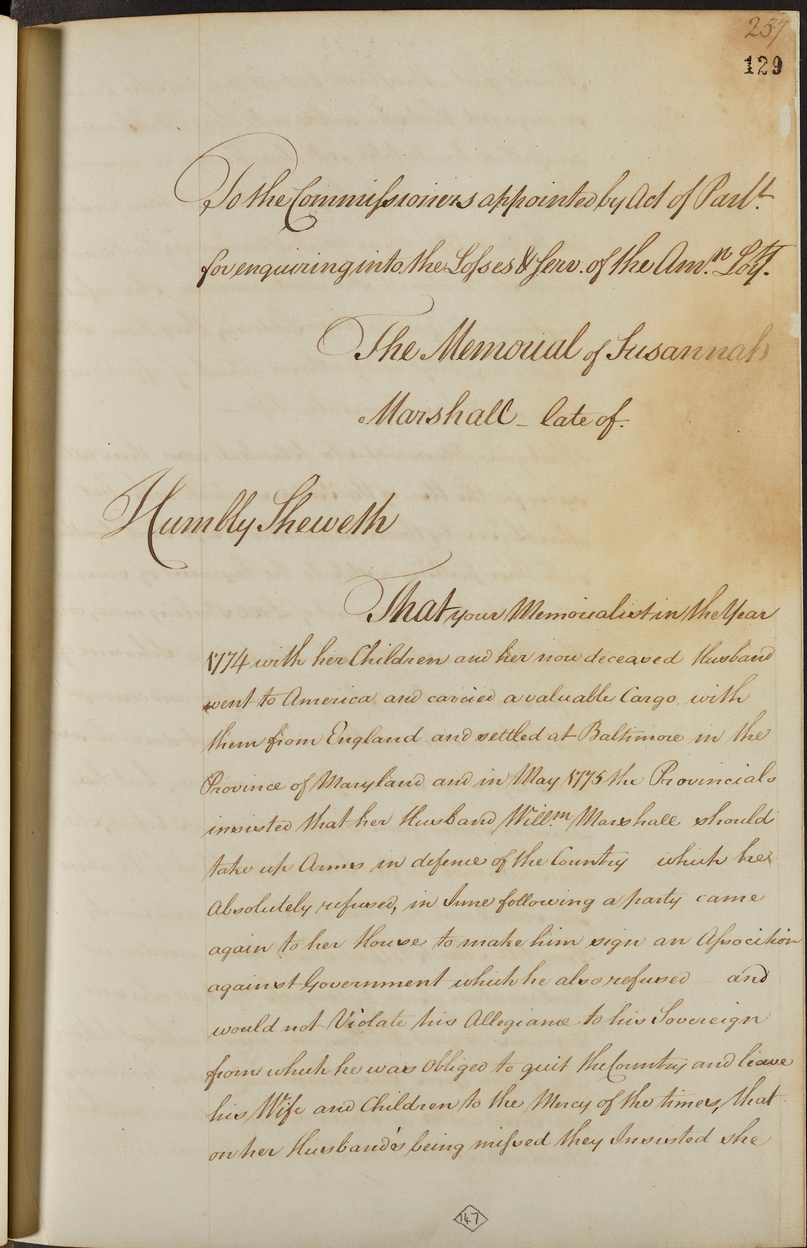 257
129
To the Commissioners appointed by Act of Parlt.
for enquiring into the Losses & Serv. of the Amn. Loyts.
The Memorial of Susannah
Marshall - late of.
Humbly Sheweth
That your Memorialist in the Year
1774 with her Children and her now deceased Husband
went to America and carried a valuable Cargo with
them from England and settled at Baltimore in the
Province of Maryland and in May 1775 the Provincials
insisted that her Husband Willm. Marshall should
take up Arms in defence of the Country which he
Absolutely refused, in June following a party came
again to her House to make him sign an Association
against Government which he also refused and
would not Violate his Allegiance to his Sovereign
from which he was Obliged to quit the Country and leave
his Wife and Children to the Mercy of the times, that
on her Husband's being missed they Insisted she
147